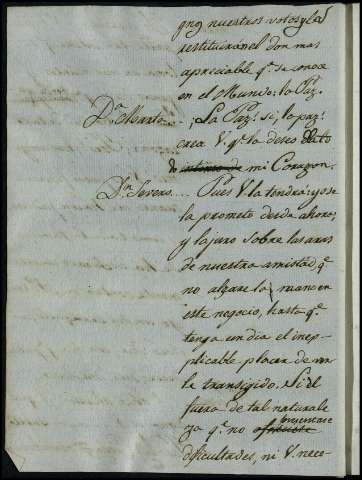 gnos nuestros votos y la
restituirán el don mas
apreciable qe. se conoce
en el Mundo: la Paz.
Da. Marta. ¡La Paz! si, la paz:
crea V. qe. la deseo
mi Corazon.
Dn. Severo... Pues V. la tendrá: yo se
la prometo desde ahora;
y la juro sobre las aras
de nuestra amistad, qe.
no alzaré la mano en
este negocio, hasta qe.
tenga un dia el inex-
plicable placer de ver-
le transigido. Si él
fuera de tal naturale
za qe. no presentase
dificultades, ni V. nece-